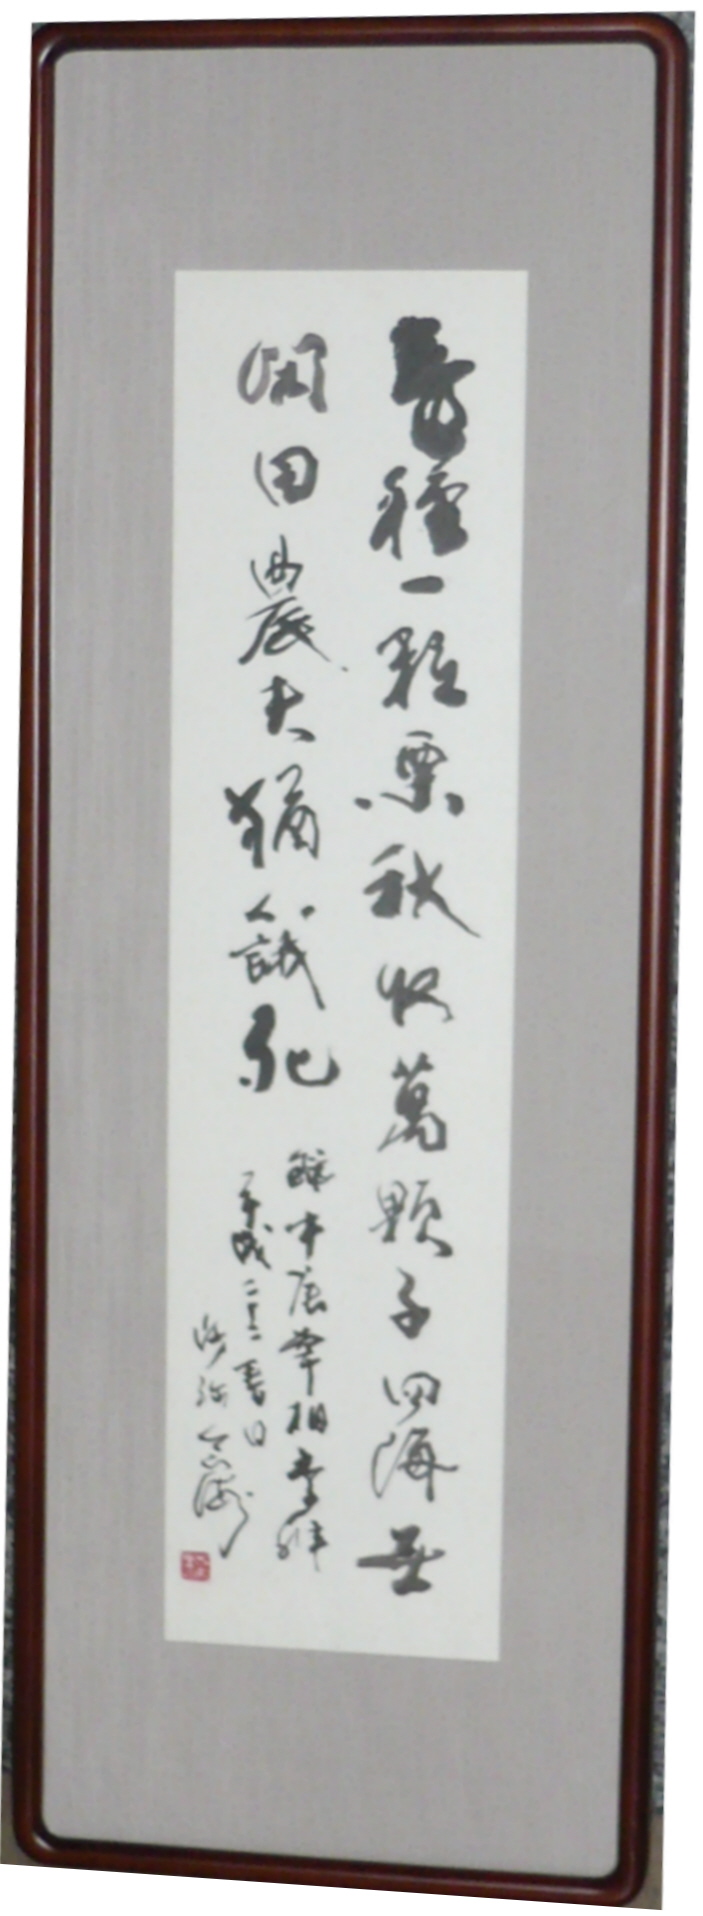 春種一粒粟秋收萬顆子四海無
閑田農夫猶餓死
録中唐宰相李紳
平成二十二春日